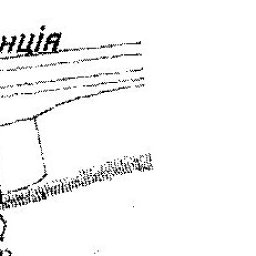 нція